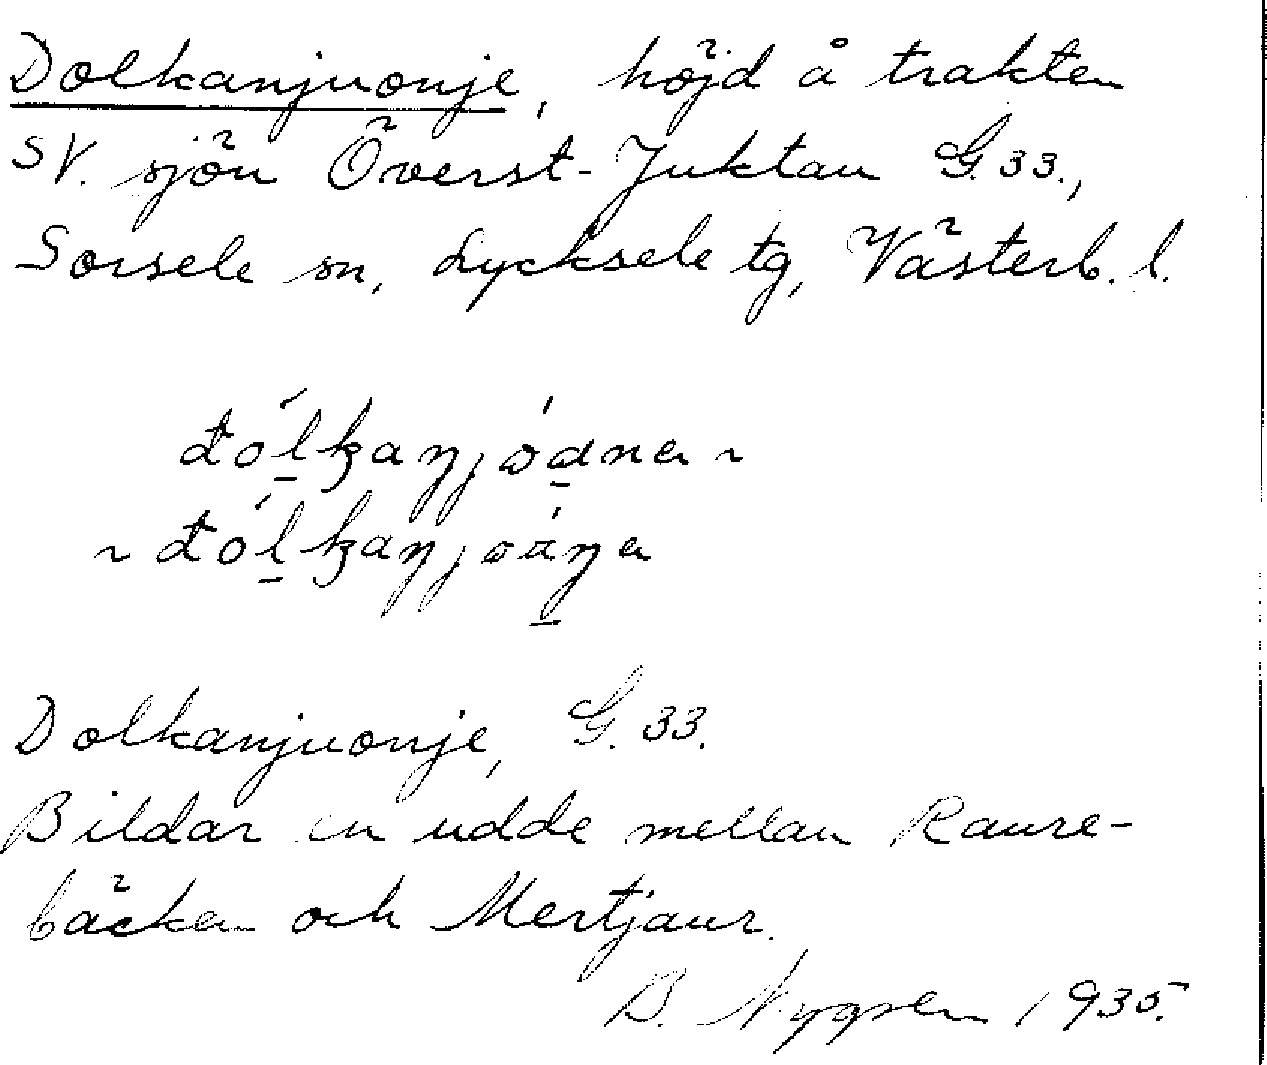 Dolkanjuonje, höjd å trakten
SV. sjön Överst-Juktan G.33.,
Sorsele sn, Lycksele tg, Västerb. l.
Dolkanjuonje, G. 33.
Bildar en udde mellan Raure-
bäcken och Mertjaur.
B. Nygren 1935.